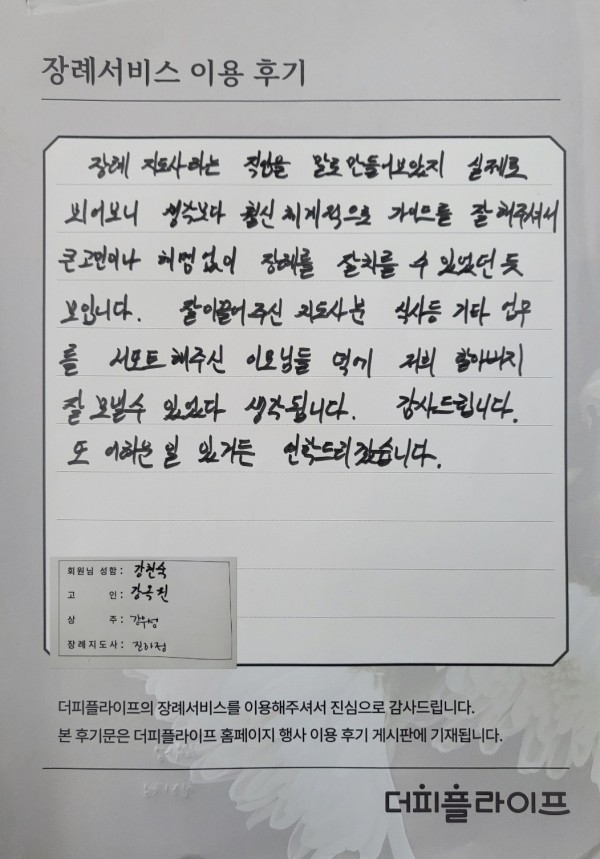 장례서비스 이용 후기
장례 지도사라는 직업을 말로만들어보았지 실제로
뵈어보니 생각보다 훨신 체계적으로 가이드를 잘 해주셔서
큰고민이나 헤멤없이 장례를 잘치를 수 있었던 듯
보입니다. 잘이끌어주신 지도사분 식사등 기타 업무
를 서포트해주신 이모님들 덕에 저희 할아버지
잘 보낼수 있었다 생각됩니다. 감사드립니다.
또 어려운 일 있거든 연락드리겠습니다.
회원님 성함 : 강현숙
고 인 : 강옥진
상 주 : 강우성
장례지도사 : 진하정
더피플라이프의 장례서비스를 이용해주셔서 진심으로 감사드립니다.
본 후기문은 더피플라이프 홈페이지 행사 이용 후기 게시판에 기재됩니다.
더피플라이프